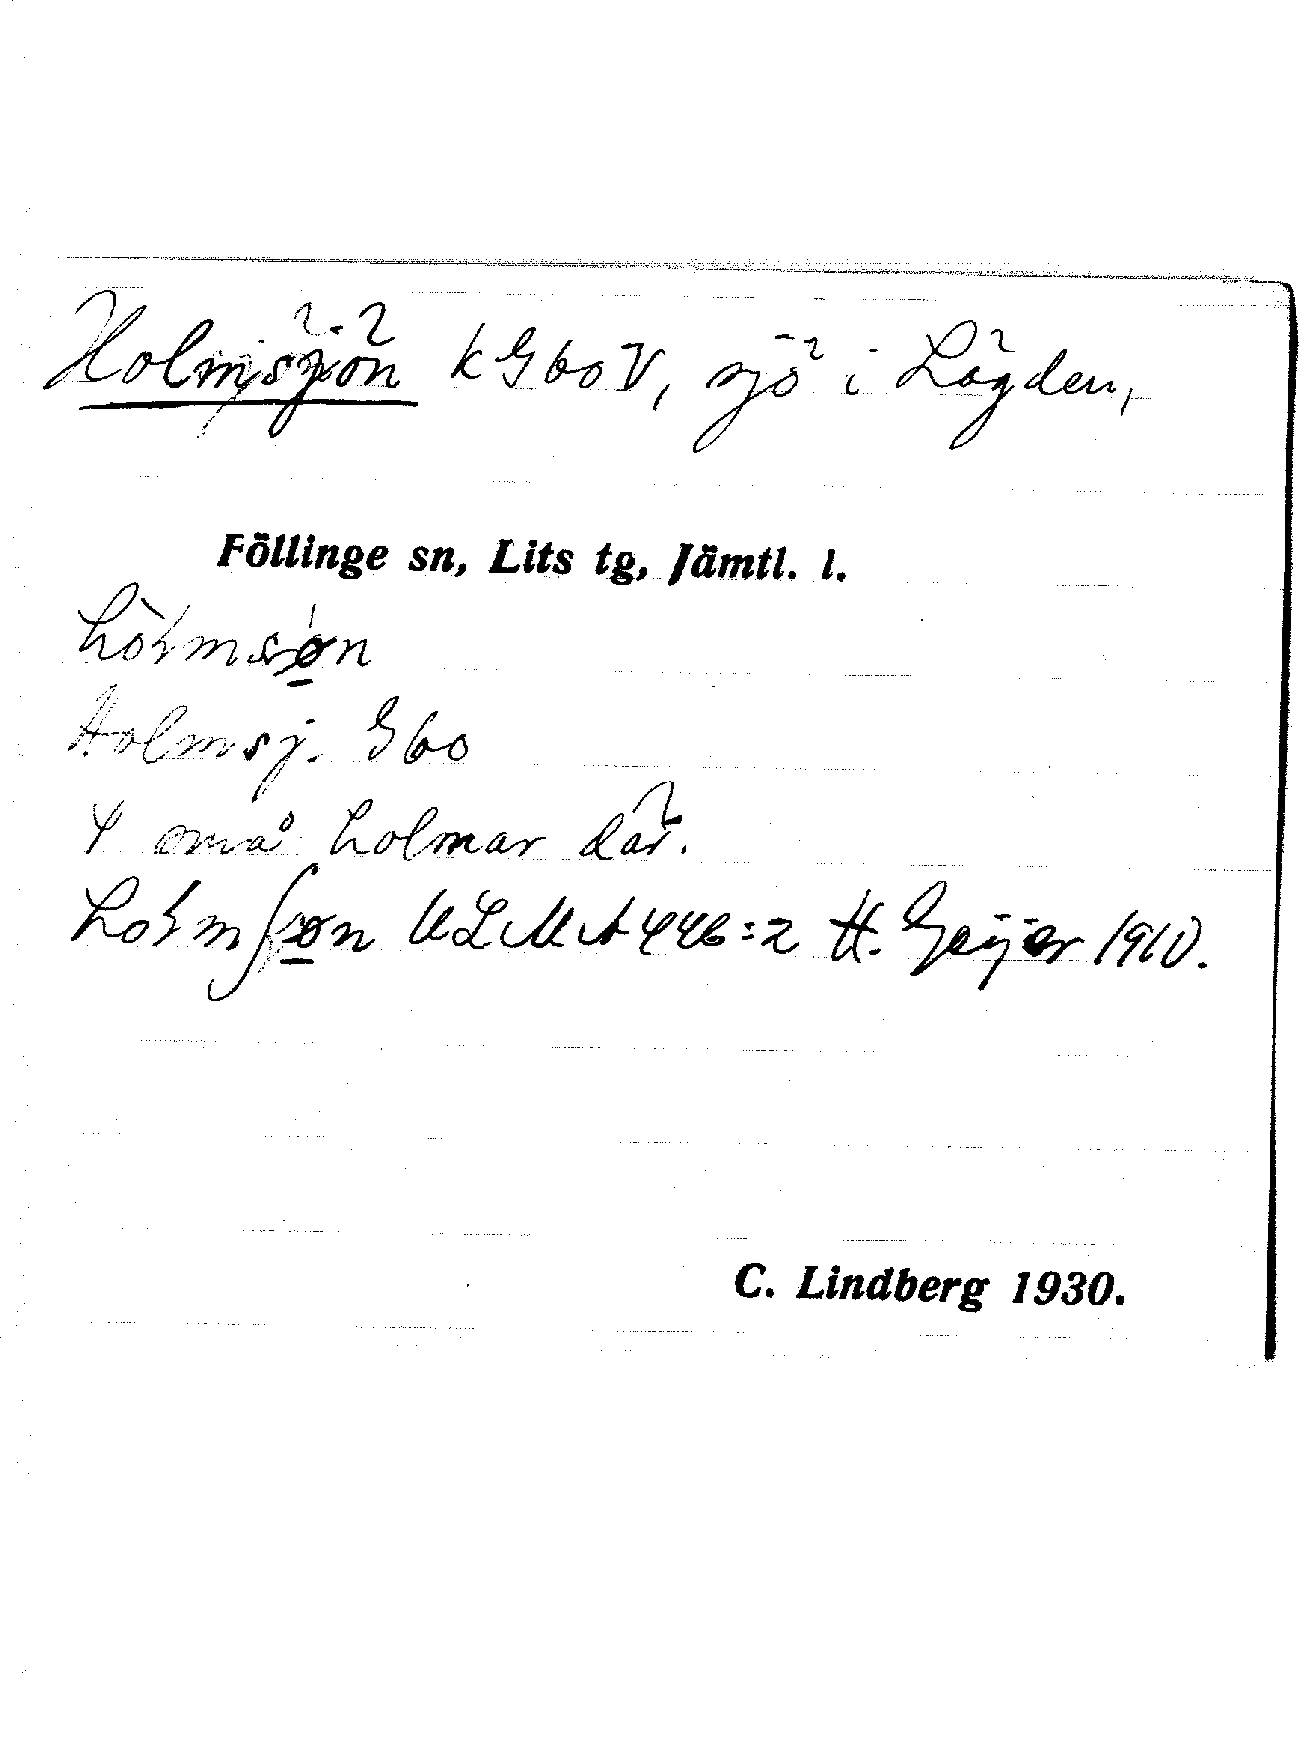 Holmsjön k G60V, sjö i Lögden,
Föllinge sn, Lits tg, Jämtl. l.
Holmsj. G60
4 små holmar där.
ULMA 446:2 H. Geijer 1910.
C. Lindberg 1930.